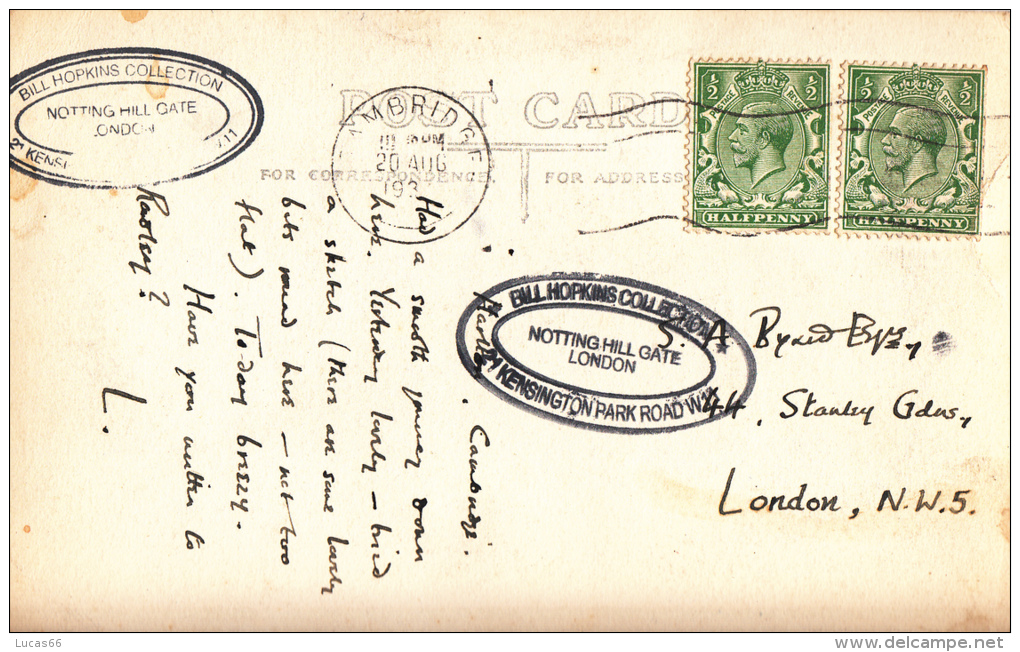 BILL HOPKINS COLLECTION
NOTTING HILL GATE
LONDON
21 KENSI
W11
POST CARD
FOR CORRESPONDENCE.
FOR ADDRESS
CAMBRIDGE
20 AUG
193
½ ½
POSTAGE REVENUE
HALFPENNY
½ ½
POSTAGE REVENUE
HALFPENNY
BILL HOPKINS COLLECTION
NOTTING HILL GATE
LONDON
21 KENSINGTON PARK ROAD W11
Cambridge.
Had a smooth journey down
here. Yesterday lovely – tried
a sketch (there are some lovely
bits round here – not too
flat). To-day breezy.
Have you written to
L.
S. A Byard Esq.,
44, Stanley Gdns,
London, N.W.5.
Lucas66
www.delcampe.net